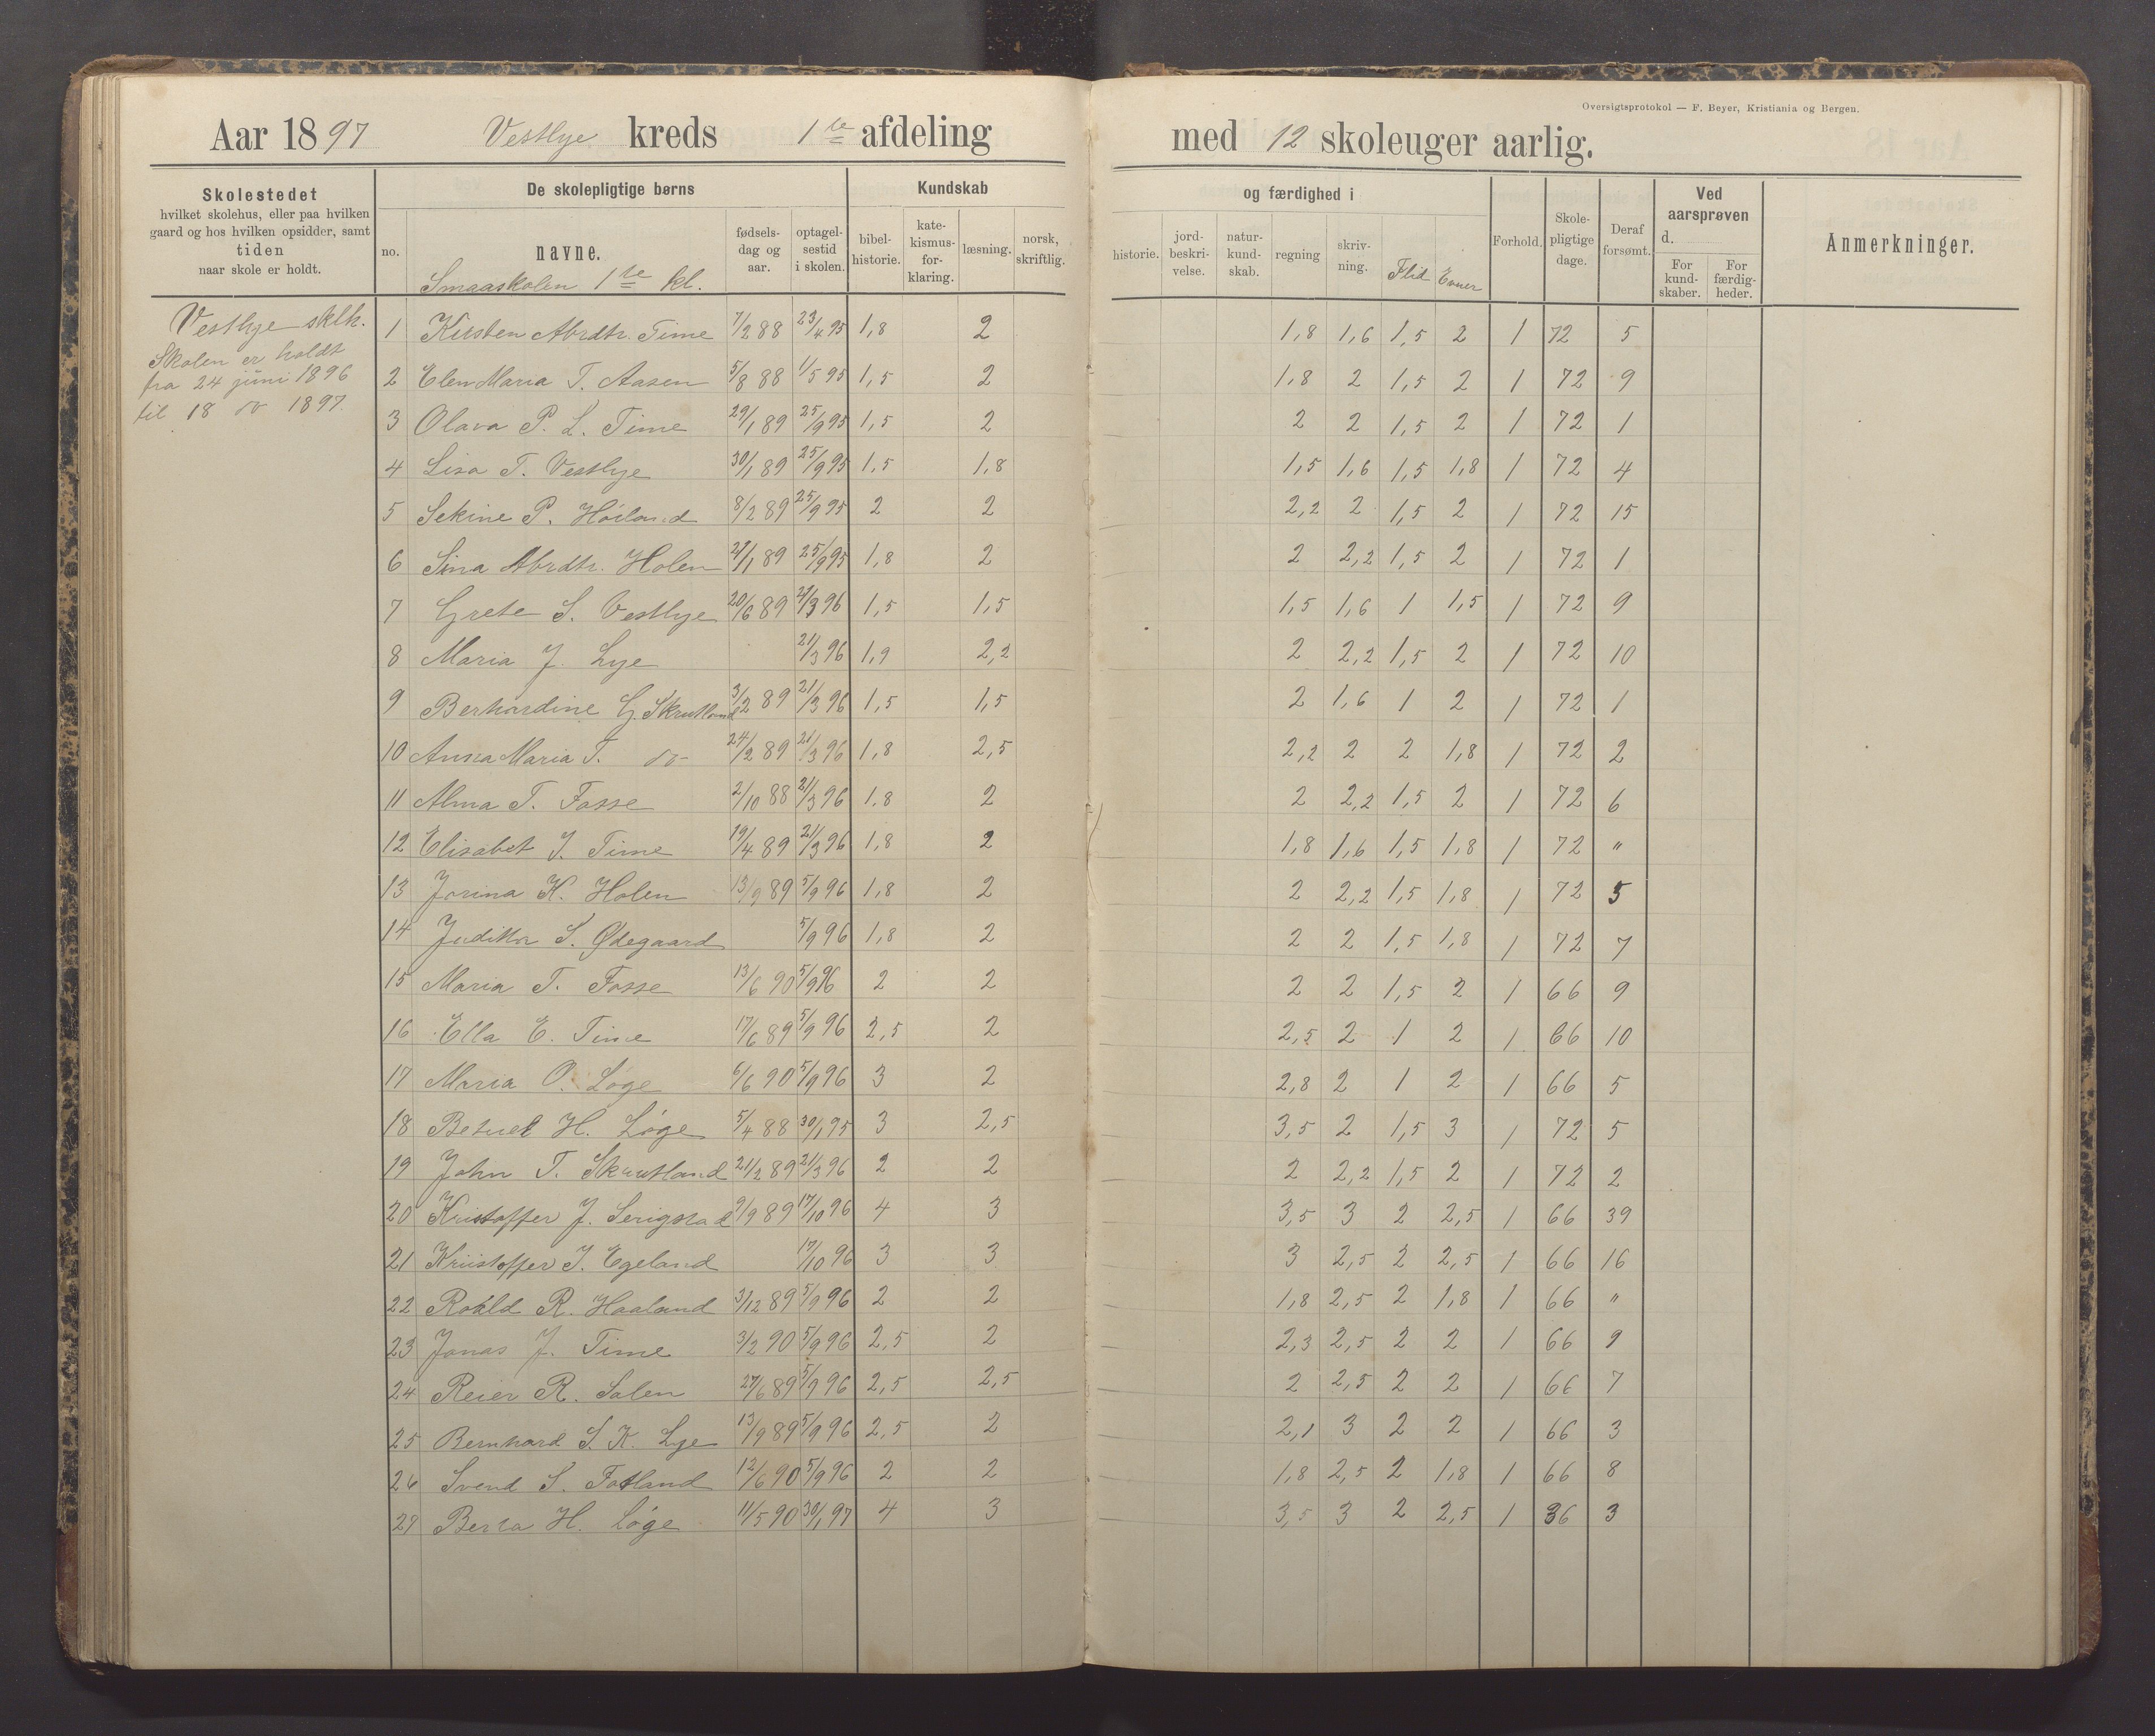 Oversigtsprotokol — F. Beyer, Kristiania og Bergen.
Aar 1897 Vestlye kreds 1ste afdeling med 12 skoleuger aarlig.
Skolestedet hvilket skolehus, eller paa hvilken gaard og hos hvilken opsidder, samt tiden naar skole er holdt.
De skolepligtige børns
no. navne. fødselsdag og aar. optagelsestid i skolen.
Kundskab og færdighed i
bibelhistorie. katekismusforklaring. læsning. norsk, skriftlig. historie. jordbeskrivelse. naturkundskab. regning skrivning. Flid Evner
Forhold. Skolepligtige dage. Deraf forsømt. Ved aarsprøven d. For kundskaber. For færdigheder. Anmerkninger.
Smaaskolen 1ste kl.
Vestlye sklh.
Skolen er holdt
fra 24 juni 1896
til 18 do 1897.
1 Kirsten Abrdtr. Time 7/2 88 23/4 95 1,8 2 1,8 1,6 1,5 2 1 72 5
2 Elen Maria T. Aasen 5/8 88 1/5 95 1,5 2 1,8 2 1,5 2 1 72 9
3 Olava P. L. Time 29/1 89 25/9 95 1,5 2 2 2 1,5 2 1 72 1
4 Lisa T. Vestlye 30/1 89 25/9 95 1,5 1,8 1,5 1,6 1,5 1,8 1 72 4
5 Sekine P. Høiland 8/2 89 25/9 95 2 2 2,2 2 1,5 2 1 72 15
6 Sina Abrdtr. Holen 27/1 89 25/9 95 1,8 2 2 2,2 1,5 2 1 72 1
7 Grete S. Vestlye 20/6 89 21/3 96 1,5 1,5 1,5 1,6 1 1,5 1 72 9
8 Maria J. Lye 21/3 96 1,9 2,2 2 2,2 1,5 2 1 72 10
9 Berhardine G. Skrutland 3/2 89 21/3 96 1,5 1,5 2 1,6 1 2 1 72 1
10 Anna Maria T. do 24/2 89 21/3 96 1,8 2,5 2,2 2 2 1,8 1 72 2
11 Alma T. Fosse 2/10 88 21/3 96 1,8 2 2 2,2 1,5 2 1 72 6
12 Elisabet J. Time 19/4 89 21/3 96 1,8 2 1,8 1,6 1,5 1,8 1 72 "
13 Jorina K. Holen 13/9 89 5/9 96 1,8 2 2 2,2 1,5 1,8 1 72 5
14 Juditta S. Ødegaard 5/9 96 1,8 2 2 2 1,5 1,8 1 72 7
15 Maria T. Fosse 13/6 90 5/9 96 2 2 2 2 1,5 2 1 66 9
16 Ella E. Time 17/6 89 5/9 96 2,5 2 2,5 2 1 2 1 66 10
17 Maria O. Løge 6/6 90 5/9 96 3 2 2,8 2 1 2 1 66 5
18 Betuel H. Løge 5/4 88 30/1 95 3 2,5 3,5 2 1,5 3 1 72 5
19 John T. Skrutland 21/2 89 21/3 96 2 2 2 2,2 1,5 2 1 72 2
20 Kristoffer J. Serigstad 9/9 89 17/10 96 4 3 3,5 3 2 2,5 1 66 39
21 Kristoffer J. Egeland 17/10 96 3 3 3 2,5 2 2,5 1 66 16
22 Roald R. Haaland 3/12 89 5/9 96 2 2 1,8 2,5 2 1,8 1 66 "
23 Jonas J. Time 3/2 90 5/9 96 2,5 2 2,3 2,5 2 2 1 66 9
24 Reier R. Salen 27/6 89 5/9 96 2,5 2,5 2 2,5 2 2 1 66 7
25 Bernhard S. K. Lye 13/9 89 5/9 96 2,5 2 2,1 3 2 2 1 66 3
26 Svend S. Fotland 12/6 90 5/9 96 2 2 1,8 2,5 2 1,8 1 66 8
27 Berta H. Løge 11/5 90 30/1 97 4 3 3,5 3 2 2,5 1 36 3